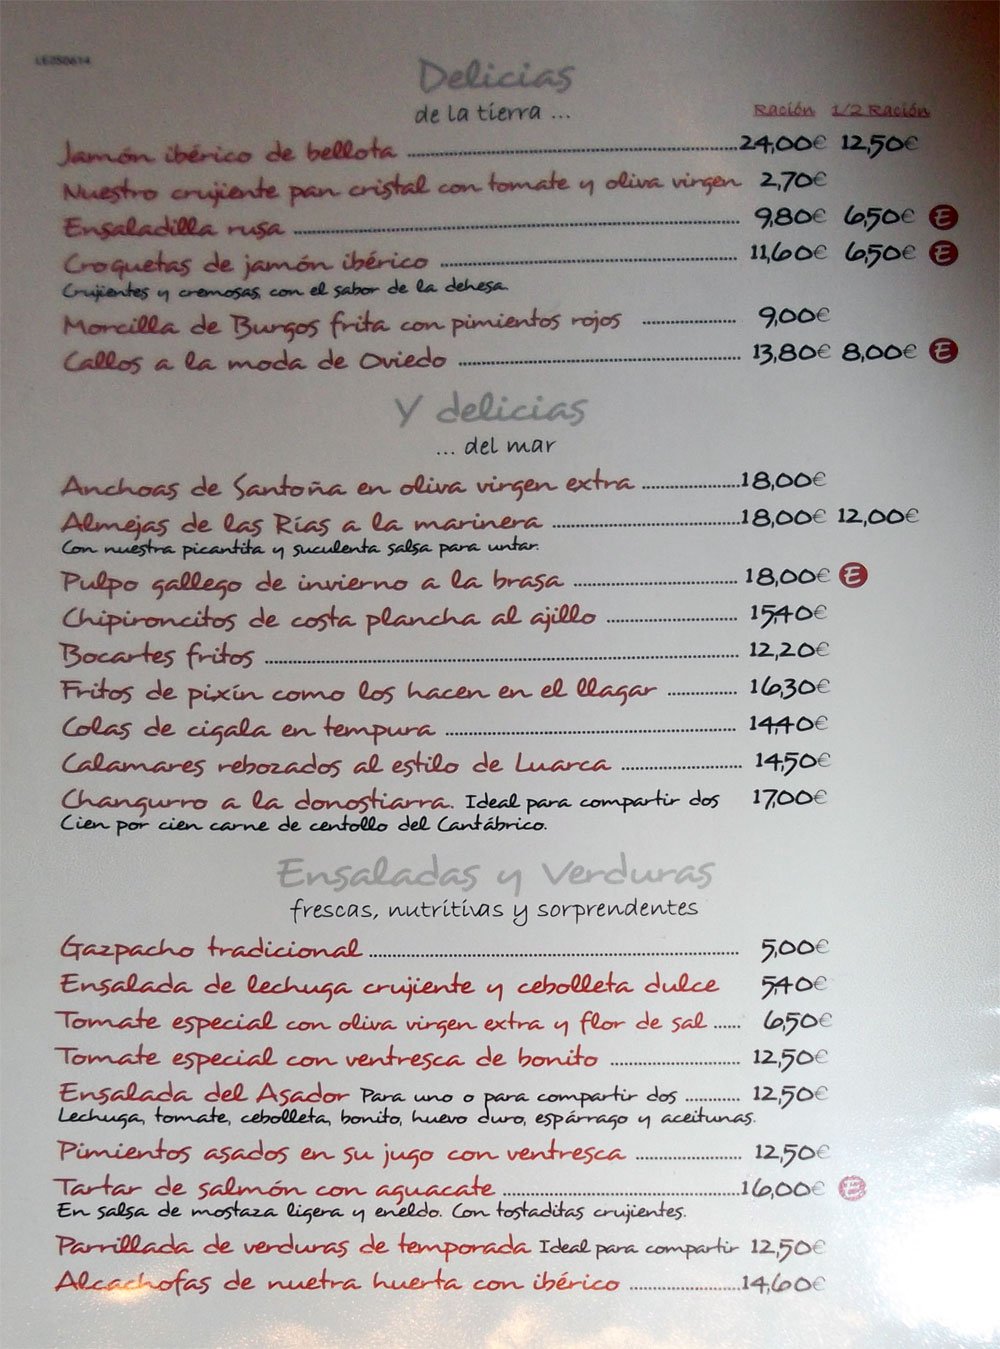 LE250614
Delicias
de la tierra ...
Ración 1/2 Ración
Jamón ibérico de bellota 24,00€ 12,50€
Nuestro crujiente pan cristal con tomate y oliva virgen 2,70€
Ensaladilla rusa 9,80€ 6,50€ E
Croquetas de jamón ibérico 11,60€ 6,50€ E
Crujientes y cremosas, con el sabor de la dehesa.
Morcilla de Burgos frita con pimientos rojos 9,00€
Callos a la moda de Oviedo 13,80€ 8,00€ E
Y delicias
... del mar
Anchoas de Santoña en oliva virgen extra 18,00€
Almejas de las Rías a la marinera 18,00€ 12,00€
Con nuestra picantita y suculenta salsa para untar.
Pulpo gallego de invierno a la brasa 18,00€ E
Chipironcitos de costa plancha al ajillo 15,40€
Bocartes fritos 12,20€
Fritos de pixín como los hacen en el llagar 16,30€
Colas de cigala en tempura 14,40€
Calamares rebozados al estilo de Luarca 14,50€
Changurro a la donostiarra. Ideal para compartir dos 17,00€
Cien por cien carne de centollo del Cantábrico.
Ensaladas y Verduras
frescas, nutritivas y sorprendentes
Gazpacho tradicional 5,00€
Ensalada de lechuga crujiente y cebolleta dulce 5,40€
Tomate especial con oliva virgen extra y flor de sal 6,50€
Tomate especial con ventresca de bonito 12,50€
Ensalada del Asador Para uno o para compartir dos 12,50€
Lechuga, tomate, cebolleta, bonito, huevo duro, espárrago y aceitunas.
Pimientos asados en su jugo con ventresca 12,50€
Tartar de salmón con aguacate 16,00€
En salsa de mostaza ligera y eneldo. Con tostaditas crujientes.
Parrillada de verduras de temporada Ideal para compartir 12,50€
Alcachofas de nuetra huerta con ibérico 14,60€